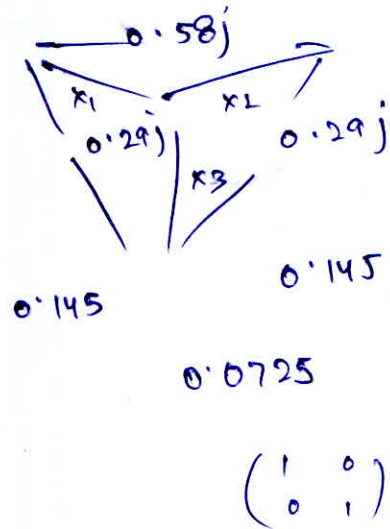 0.58j
x1 x2
0.29j 0.29j
x3
0.145 0.145
0.0725
( 1 0
0 1 )